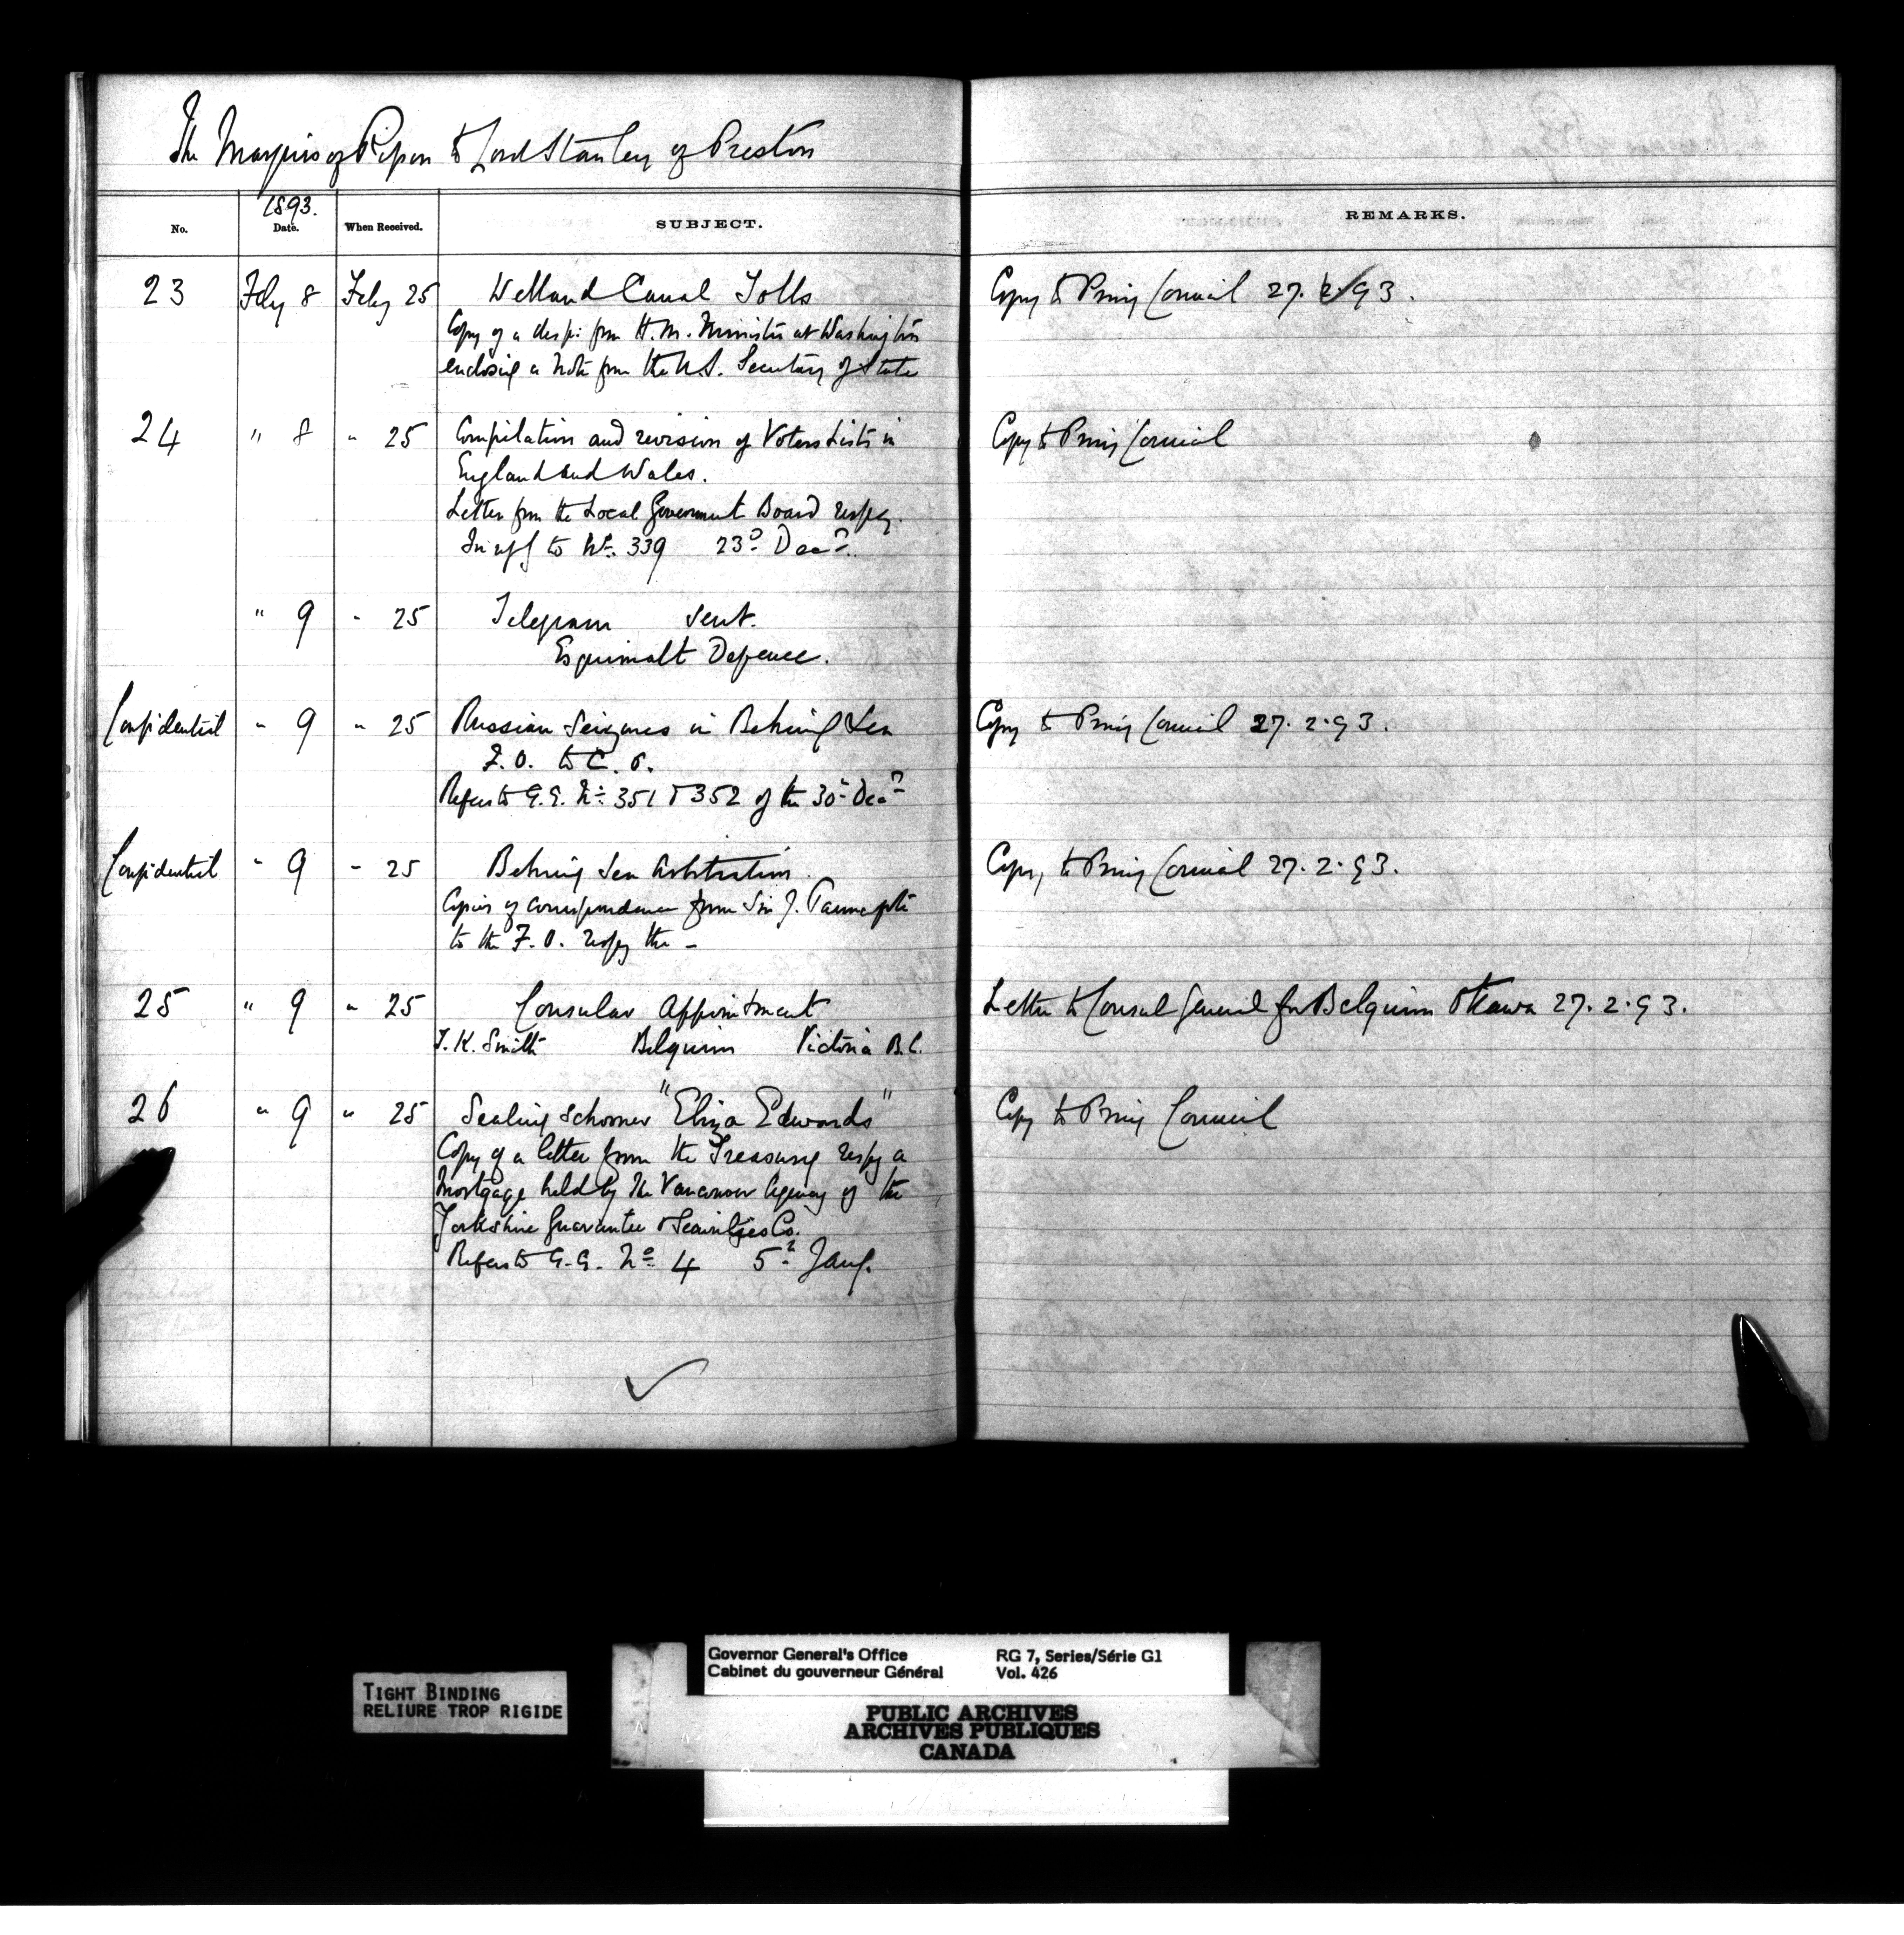 The Marquis of Ripon to Lord Stanley of Preston
No. 1893. Date. When Received. SUBJECT. REMARKS.
23 Feby 8 Feby 25 Welland Canal Tolls Copy to Privy Council 27. 2/93.
Copy of a desp: from H.M. Minister at Washington
enclosing a note from the U.S. Secretary of State
24 " 8 " 25 Compilation and revision of Voters Lists in Copy to Privy Council
England and Wales.
Letter from the Local Government Board respg.
In reply to No. 339 23d Decr.
" 9 " 25 Telegram sent.
Esquimalt Defence.
Confidential " 9 " 25 Russian Seizures in Behring Sea Copy to Privy Council 27.2.93.
F.O. to C.O.
Refers to G.G. No. 351 & 352 of the 30th Decr
Confidential " 9 " 25 Behring Sea Arbitration. Copy to Privy Council 27.2.93.
Copies of correspondence from Sir J. Pauncefote
to the F.O. respg the -
25 " 9 " 25 Consular Appointment Letter to Consul General for Belgium Ottawa 27.2.93.
T.K. Smith Belgium Victoria B.C.
26 " 9 " 25 Sealing Schooner "Eliza Edwards" Copy to Privy Council
Copy of a letter from the Treasury respg a
Mortgage held by the Vancouver Agency of the
Yorkshire Guarantee & Securities Co.
Refers to G.G. No 4 5th Jany.
Governor General's Office RG 7, Series/Série G1
Cabinet du gouverneur Général Vol. 426
TIGHT BINDING
RELIURE TROP RIGIDE
PUBLIC ARCHIVES
ARCHIVES PUBLIQUES
CANADA